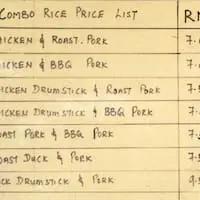 COMBO RICE PRICE LIST RM
HICKEN & ROAST. PORK 7.
HICKEN & BBQ PORK 7.
HICKEN DRUMSTICK & ROAST PORK 7.5
HICKEN DRUMSTICK & BBQ PORK 7.
OAST PORK & BBQ PORK 7.
OAST DUCK & PORK 7.5
CK DRUMSTICK & PORK 9.5